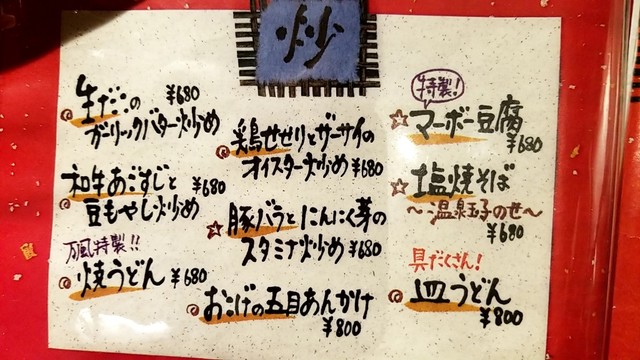 炒
生だこの ¥680
ガーリックバター炒め
和牛あごすじと ¥680
豆もやし炒め
万風特製!!
焼うどん ¥680
鶏せせりとザーサイの
オイスター炒め ¥680
☆豚バラとにんにく芽の
スタミナ炒め ¥680
おこげの五目あんかけ
¥800
特製!
☆マーボー豆腐
¥680
☆塩焼そば
～温泉玉子のせ～
¥680
具だくさん!
皿うどん
¥800